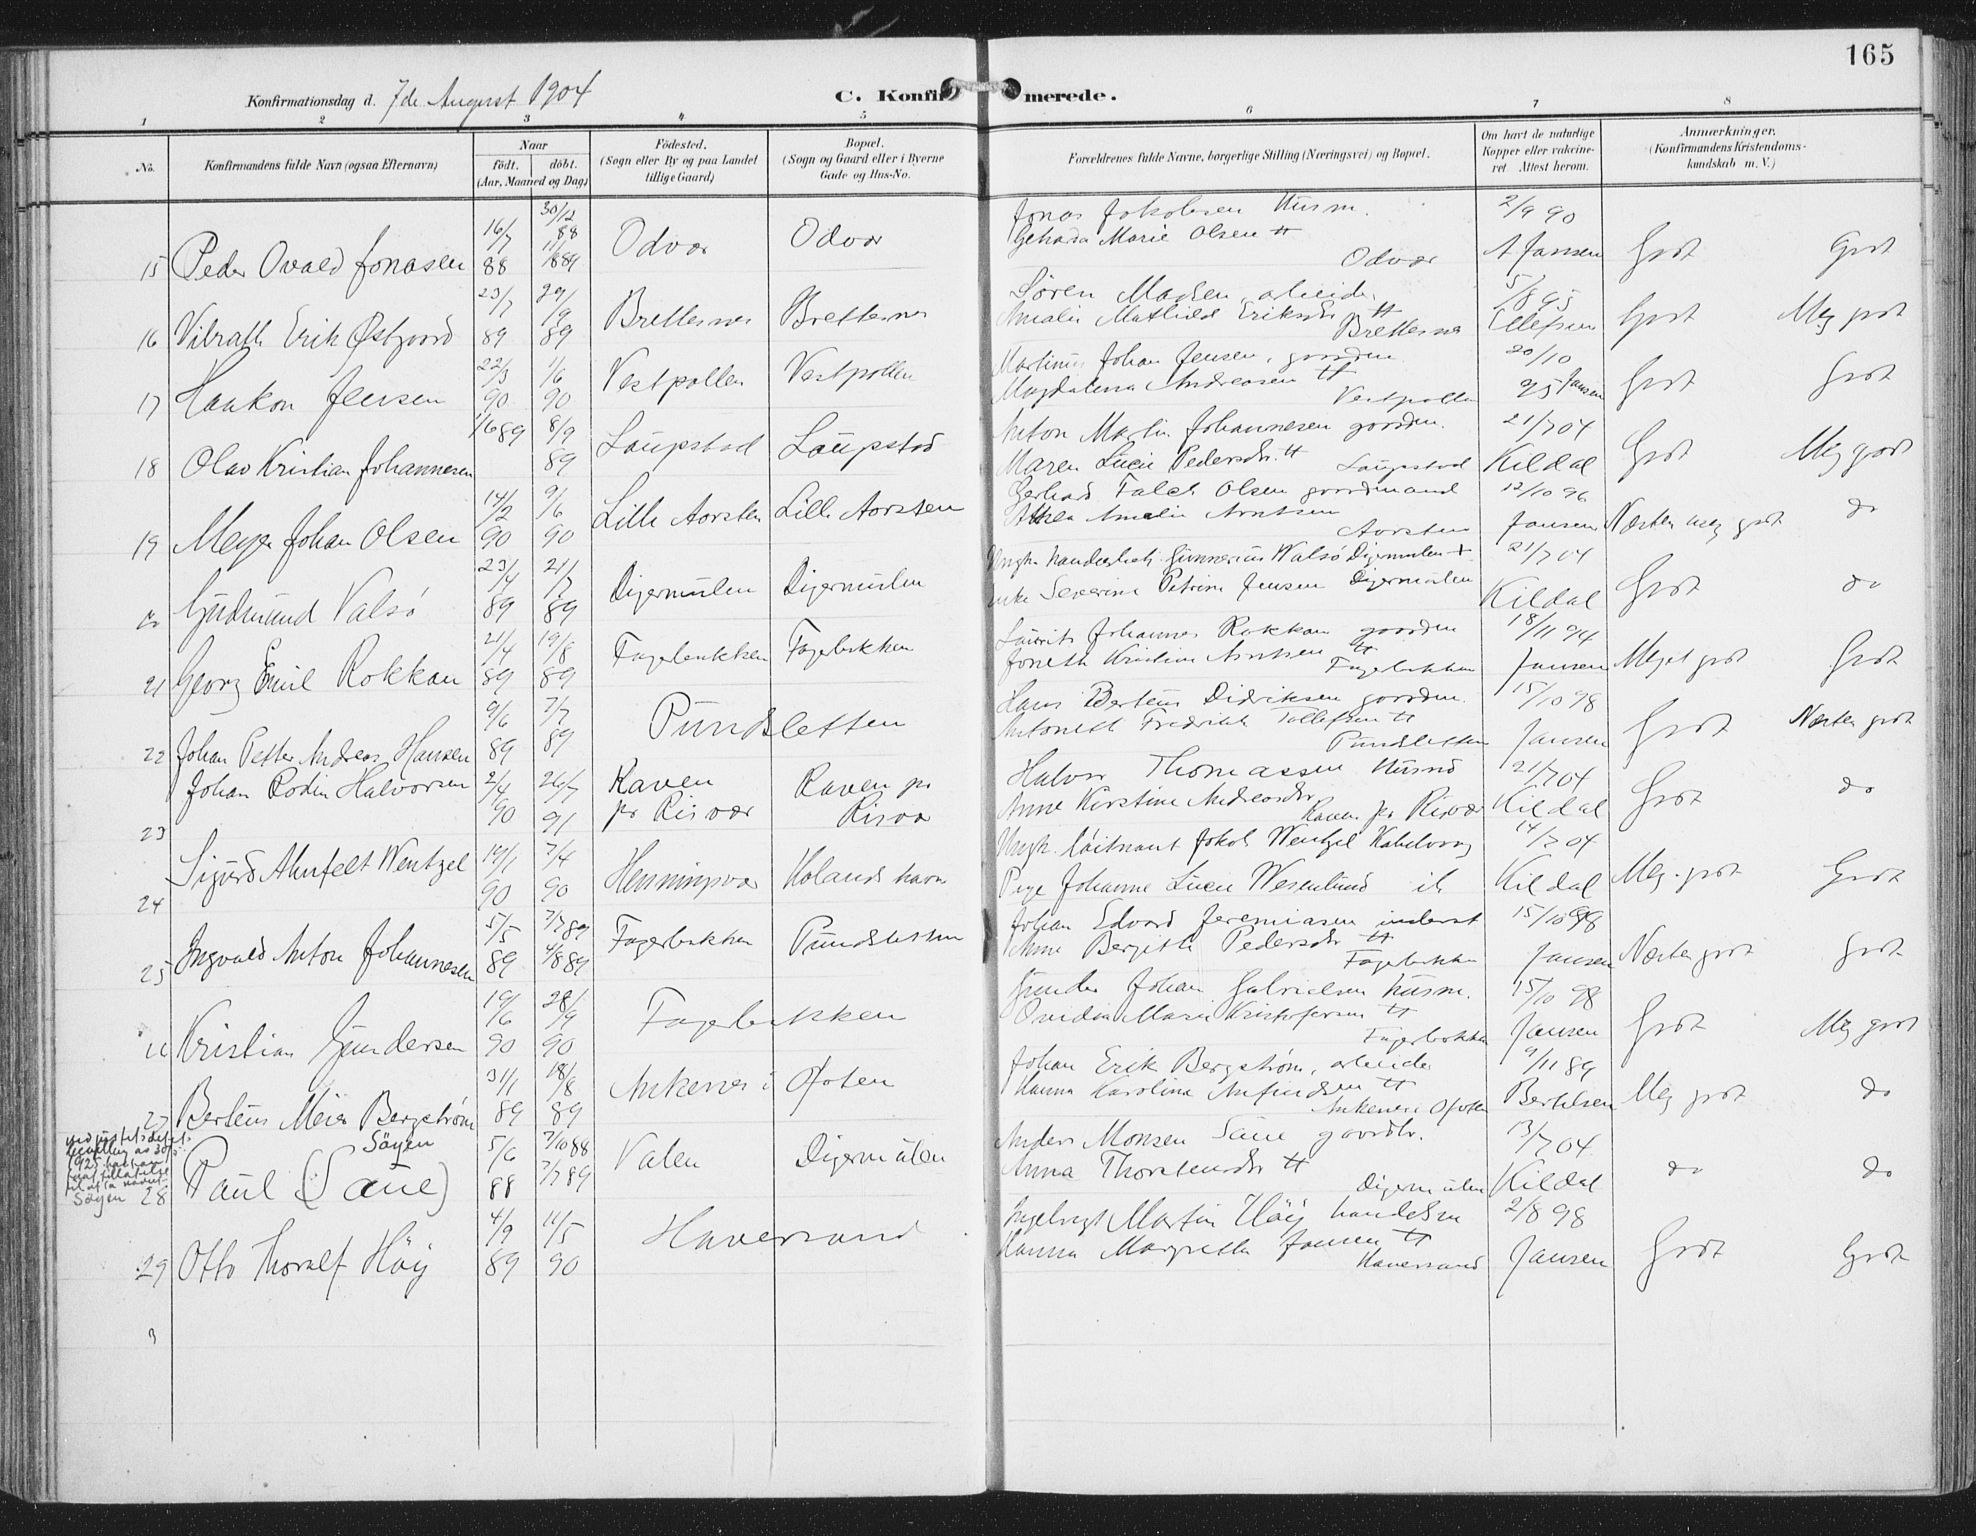 165
Konfirmationsdag d. 7de August 1904
C. Konfirmerede.
1 2 3 4 5 6 7 8
No.
Konfirmandens fulde Navn (ogsaa Efternavn)
Naar
født. døbt.
(Aar, Maaned og Dag)
Fødested.
(Sogn eller By og paa Landet
tillige Gaard)
Bopæl.
(Sogn og Gaard eller i Byerne
Gade og Hus-No.
Forældrenes fulde Navne, borgerlige Stilling (Næringsvei) og Bopæl.
Om havt de naturlige
Kopper eller vakcine-
ret. Attest herom.
Anmærkninger.
(Konfirmandens Kristendoms-
kundskab m. V.)
15 Peder Ovald Jonasen 16/7 88 30/12 88 Odvær Odvær
Jonas Jakobsen Husm. 2/9 90
Marie Olsen Odvær A Jansen Godt Godt
16 Vilrath Erik Østgaard 23/7 89 29/9 89 Brettesnes Brettesnes
Søren Madsen arbeider 5/8 95
Amalie Mathilde Eriksdr Brettesnes Ellefsen Godt Meg godt
17 Haakon Jensen 22/3 90 1/6 90 Vestpollen Vestpollen
Martinus Johan Jensen, gaardm. 20/10
Magdalena Andreasen Vestpollen 95 Jansen Godt Godt
18 Olav Kristian Johannesen 1/6 89 8/9 89 Laupstad Laupstad
Anton Martin Johannesen gaardm. 21/7 04
Maren Lucie Pedersdr. Laupstad Kildal Godt Meg godt
19 Meyer Johan Olsen 14/2 90 9/6 90 Lille Aorsten Lille Aorsten
Gerhard Falck Olsen gaardmand 12/10 96
Amalie Arntsen Aorsten Jansen Næsten meg godt do
20 Gudmund Valsø 23/4 89 21/7 89 Digermulen Digermulen
Ungk. handelsb. Gunnerius Walsö Digermulen + 21/7 04
enke Severine Petrine Jensen Digermulen Kildal Godt do
21 Georg Emil Rokkan 21/4 89 19/8 89 Fagerbukken Fagerbukken
Laurits Johannes Rokkan gaardm 18/11 94
Joneth Kristine Arntsen Fagerbukken Jansen Meget godt Godt
22 Johan Petter Andreas Hansen 9/6 89 7/7 89 Pundsletten
Hans Berteus Didriksen gaardm. 15/10 98
Antonette Fredrikk Tollefsen Pundsletten Jansen Godt Næsten godt
23 Johan Rodin Halvorsen 2/4 90 26/7 91 Raven pr Risvær Raven pr Risvær
Halvor Thomassen Husmd 21/7 04
Anne Kirstine Andreasdr Raven pr Risvær Kildal Godt do
24 Sigurd Ahnfelt Wentzel 19/1 90 7/4 90 Henningsvær Holandshavn
Ungk. løitnant Jakob Wentzel Kabelvaag 14/7 04
Pige Johanne Lucie Wesenlund ib Kildal Meg. godt Godt
25 Ingvald Anton Johannesen 5/5 89 7/7 89 4/8 89 Fagerbukken Pundsletten
Johan Edvard Jeremiasen inderst 15/10 98
Anne Bergith Pedersdr Fagerbukken Jansen Næsten godt Godt
Kristian Gundersen 19/6 90 28/9 90 Fagerbukken
Gunder Johan Gabrielsen husm. 15/10 98
Ovidia Marie Kristofersen Fagerbukken Jansen Godt Meg godt
27 Berteus Meier Bergstrøm 31/1 89 18/8 89 Ankenes i Ofoten
Johan Erik Bergstrøm, arbeider 9/11 89
Hanna Karoline Anfindsen Ankenes Ofoten Bertelsen Meg godt do
28 Paul (Saue) Söyen 5/6 88 7/10 88 7/7 89 Valen Digermulen
Söyen
Anders Monsen Saue gaardbr. 13/7 04
Anna Thorstensdr Digermulen Kildal do do
29 Otto Thoralf Höij 4/9 89 11/5 90 Haversand
Ingebrigt Martin Höij handelsm 2/8 98
Hanna Margrethe Jansen Haversand Jansen Godt Godt
3